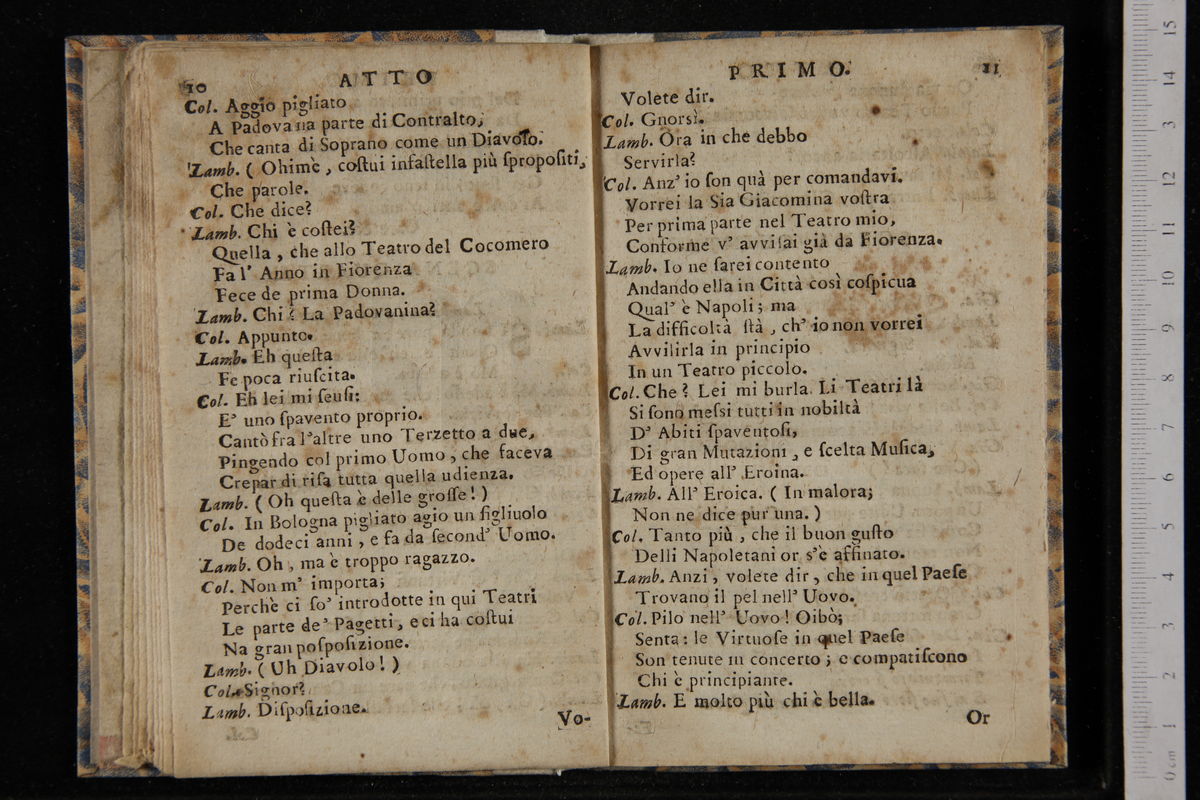 10 ATTO
Col. Aggio pigliato
A Padovana parte di Contralto,
Che canta di Soprano come un Diavolo.
Lamb. ( Ohimè , coſtui infaſtella più ſpropoſiti,
Che parole.
Col. Che dice?
Lamb. Chi è coſtei?
Quella , che allo Teatro del Cocomero
Fa l' Anno in Fiorenza
Fece de prima Donna.
Lamb. Chi? La Padovanina?
Col. Appunto.
Lamb. Eh queſta
Fe poca riuſcita.
Col. Eh lei mi ſcuſi:
E' uno ſpavento proprio.
Cantò fra l'altre uno Terzetto a due,
Pingendo col primo Uomo , che faceva
Crepar di riſa tutta quella udienza.
Lamb. ( Oh queſta è delle groſſe! )
Col. In Bologna pigliato agio un figliuolo
De dodeci anni , e fa da ſecond' Uomo.
Lamb. Oh , ma è troppo ragazzo.
Col. Non m' importa;
Perchè ci ſo' introdotte in qui Teatri
Le parte de' Pagetti, e ci ha coſtui
Na gran poſpoſizione.
Lamb. ( Uh Diavolo! )
Col. Signor?
Lamb. Diſpoſizione.
Vo-
PRIMO. 11
Volete dir.
Col. Gnorsì.
Lamb. Ora in che debbo
Servirla?
Col. Anz' io ſon quà per comandavi.
Vorrei la Sia Giacomina voſtra
Per prima parte nel Teatro mio,
Conforme v' avviſai già da Fiorenza.
Lamb. Io ne ſarei contento
Andando ella in Città così coſpicua
Qual' è Napoli; ma
La difficoltà ſtà , ch' io non vorrei
Avvilirla in principio
In un Teatro piccolo.
Col. Che? Lei mi burla. Li Teatri là
Si ſono meſsi tutti in nobiltà
D' Abiti ſpaventoſi,
Di gran Mutazioni , e ſcelta Muſica,
Ed opere all' Eroina.
Lamb. All' Eroica. ( In malora;
Non ne dice pur una. )
Col. Tanto più , che il buon guſto
Delli Napoletani or s'è affinato.
Lamb. Anzi , volete dir , che in quel Paeſe
Trovano il pel nell' Uovo.
Col. Pilo nell' Uovo! Oibò;
Senta: le Virtuoſe in quel Paeſe
Son tenute in concerto ; e compatiſcono
Chi è principiante.
Lamb. E molto più chi è bella.
Or
15
14
13
12
11
10
9
8
7
6
5
4
3
2
1
0 cm